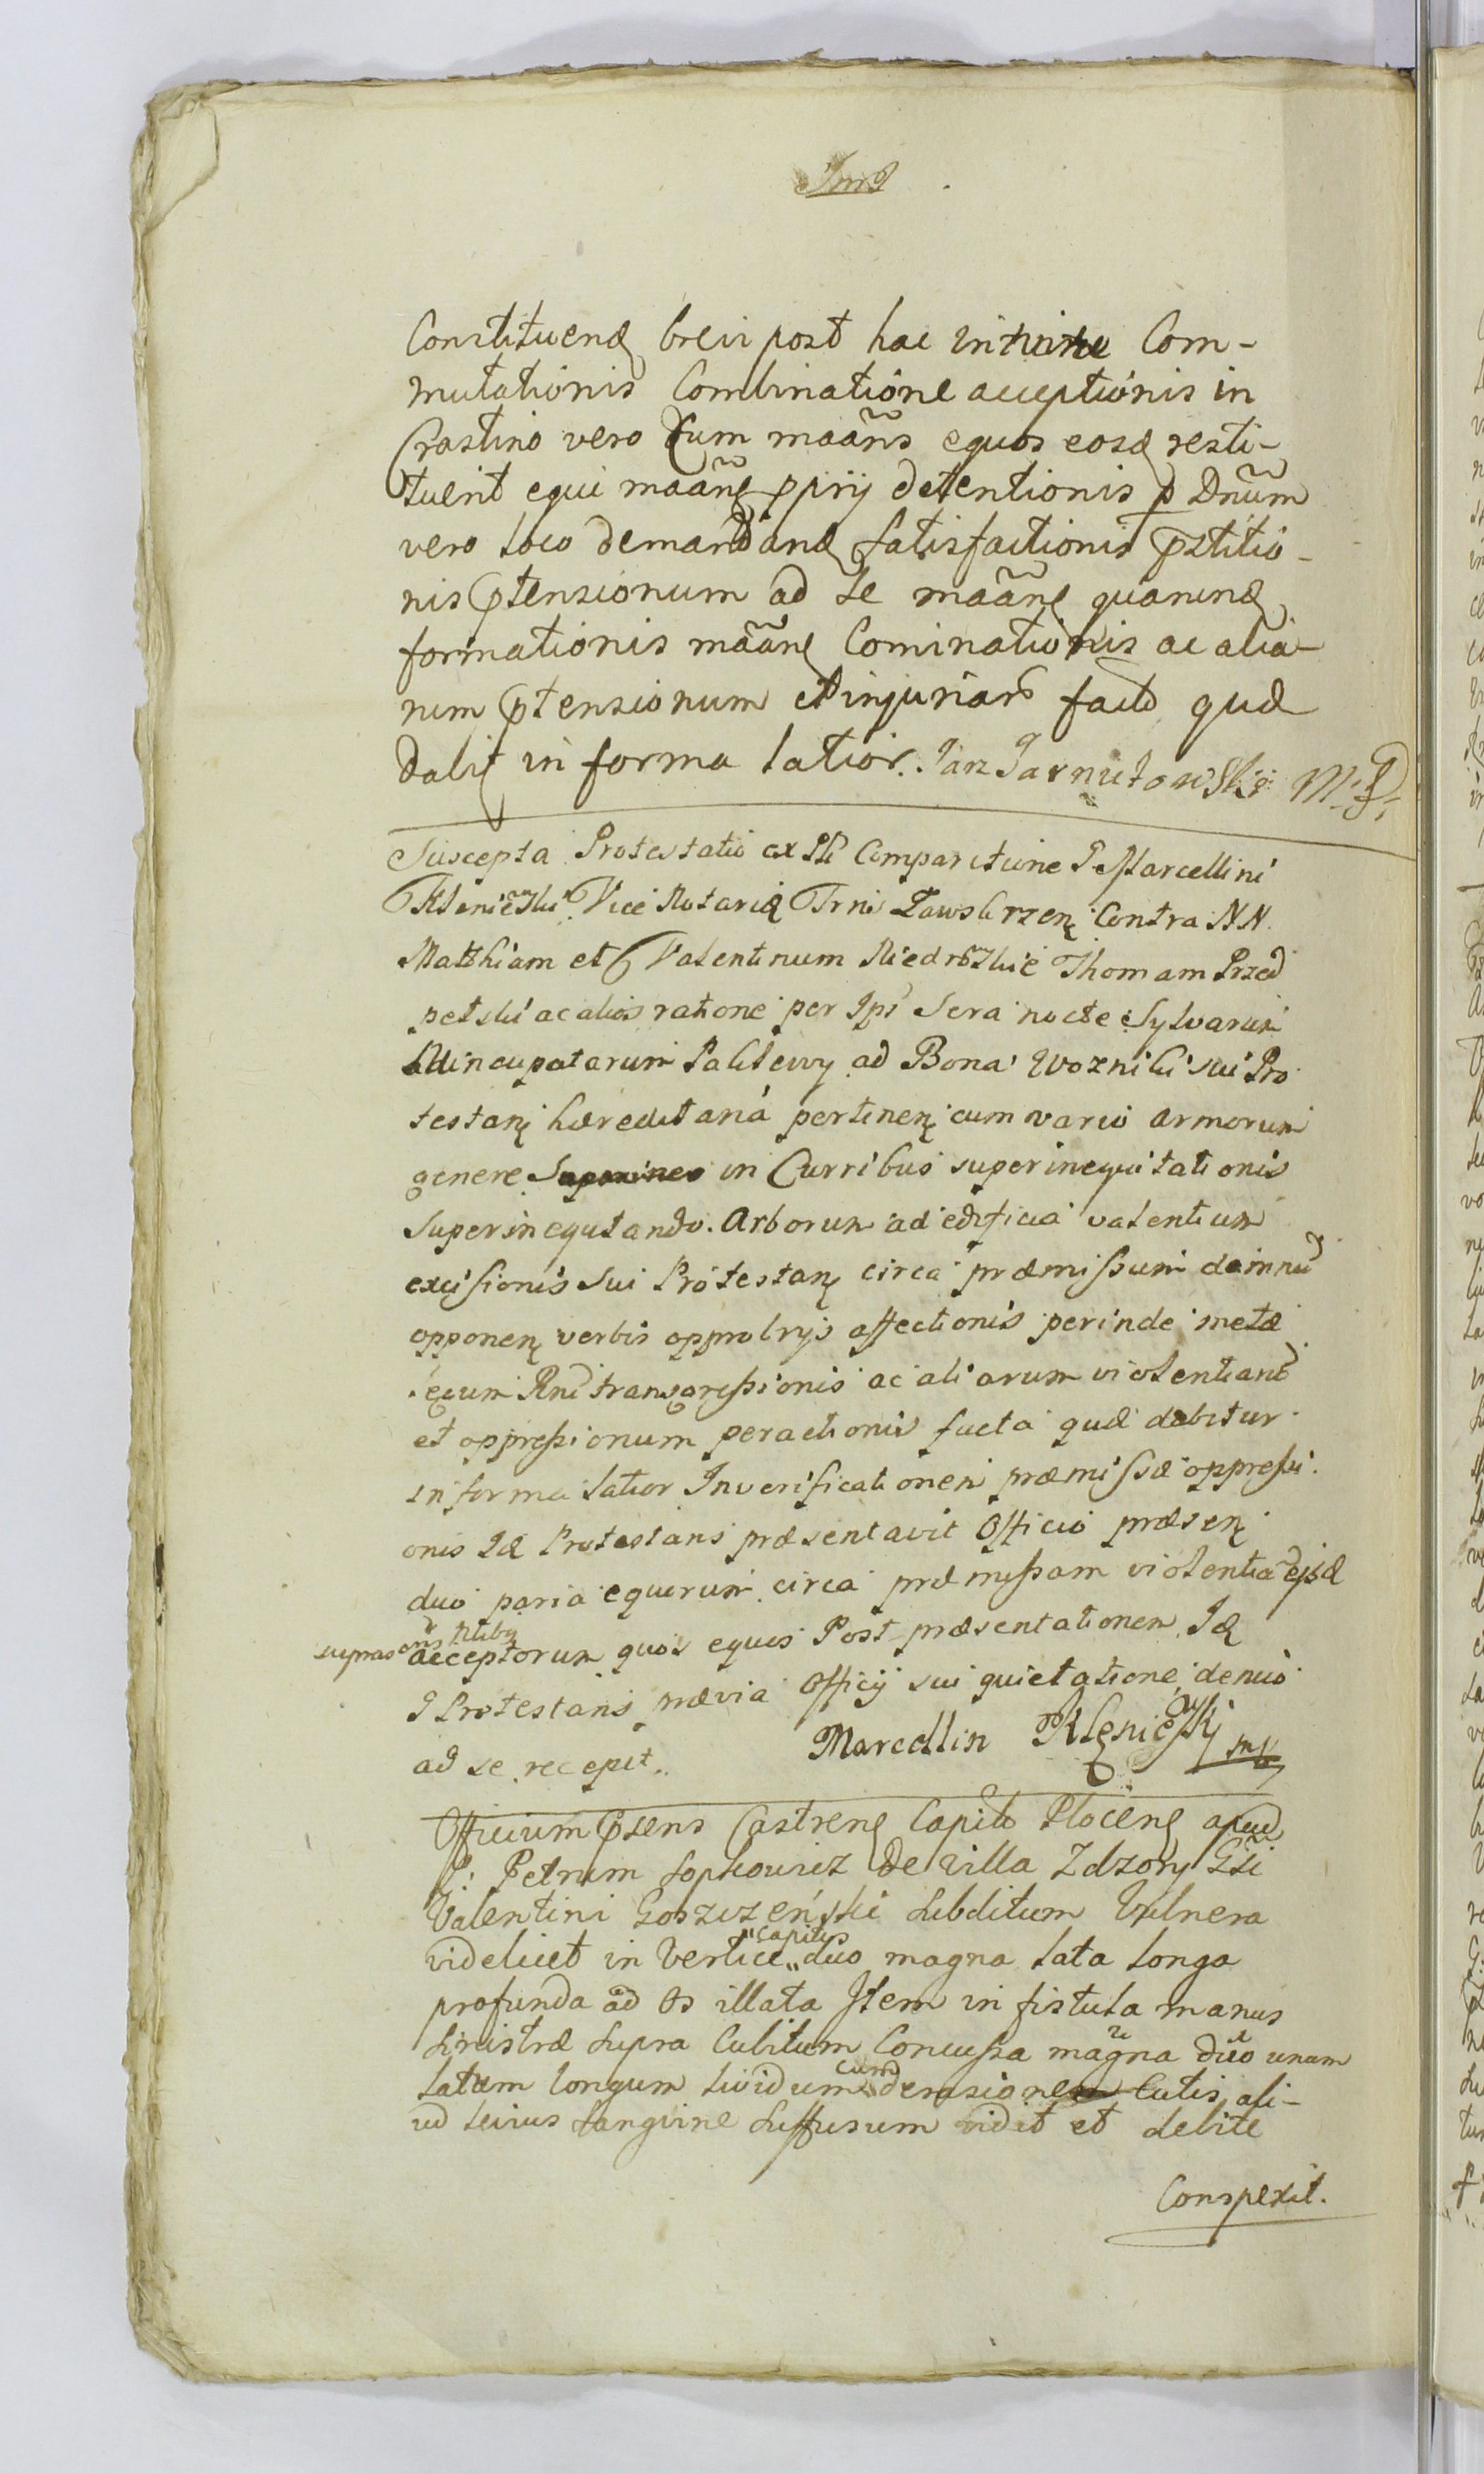 Constituend brevi post hac intuitu Com-
mutationis Combinatione acceptionis in
Crastino vero cum maãns equos eosd resti-
tuerit equi maãne pprij detentionis p Dnum
vero loco demandand satisfactionis pstitio-
nis ptensionum ad se maãne quarund
formationis maãne Cominationis ac alia-
rum ptensionum et injuriar facto qud
dabit in forma latior. Jan Jarnutowski M.P.
Suscepta Protestatio ex Comparitione P Marcellini
Vice Notarij Trni Zawskrzen Contra NN.
Matthiam et Valentinum Thomam Przed
petski ac alios ratione per Ips Sera nocte Sylvarum
nuncupatarum ad Bona Wozniki sui Pro
testan hæreditaria pertinen cum vario armorum
genere in Curribus superinequitationis
Superinequtando. Arborum ad edificia valentium
excisionis sui Protestan circa præmissum damnu
opponen verbis opprobrijs affectionis perinde metæ
legum Rni transgressionis ac aliarum violentiar
et oppressionum peractionis facta qud dabitur
in forma latior In verificationem præmissæ oppressi.
onis Id Protestans præsentavit Officio præsen
duo paria equorum circa præmissam violentia ejsd
supras acceptorum quos equos Post præsentationem Id
G Protestans prævia Officij sui quietatione denuo
ad se recepit. Marcellin Klęnieski mp
Officium psens Castrens Capitle Plocens apud
P: Petrum Sopkowicz de Villa Zdzory Gsi
Valentini Goszczeński subditum Vulnera
videlicet in Vertice "capitis" duo magna lata longa
profunda ad Os illata Item in fistula manus
sinistræ supra Cubitum Concussa magna duo unum
latum longum lividum cum derasione Cutis ali-
ud leius sanguine suffusum vidit et debite
Conspexit.